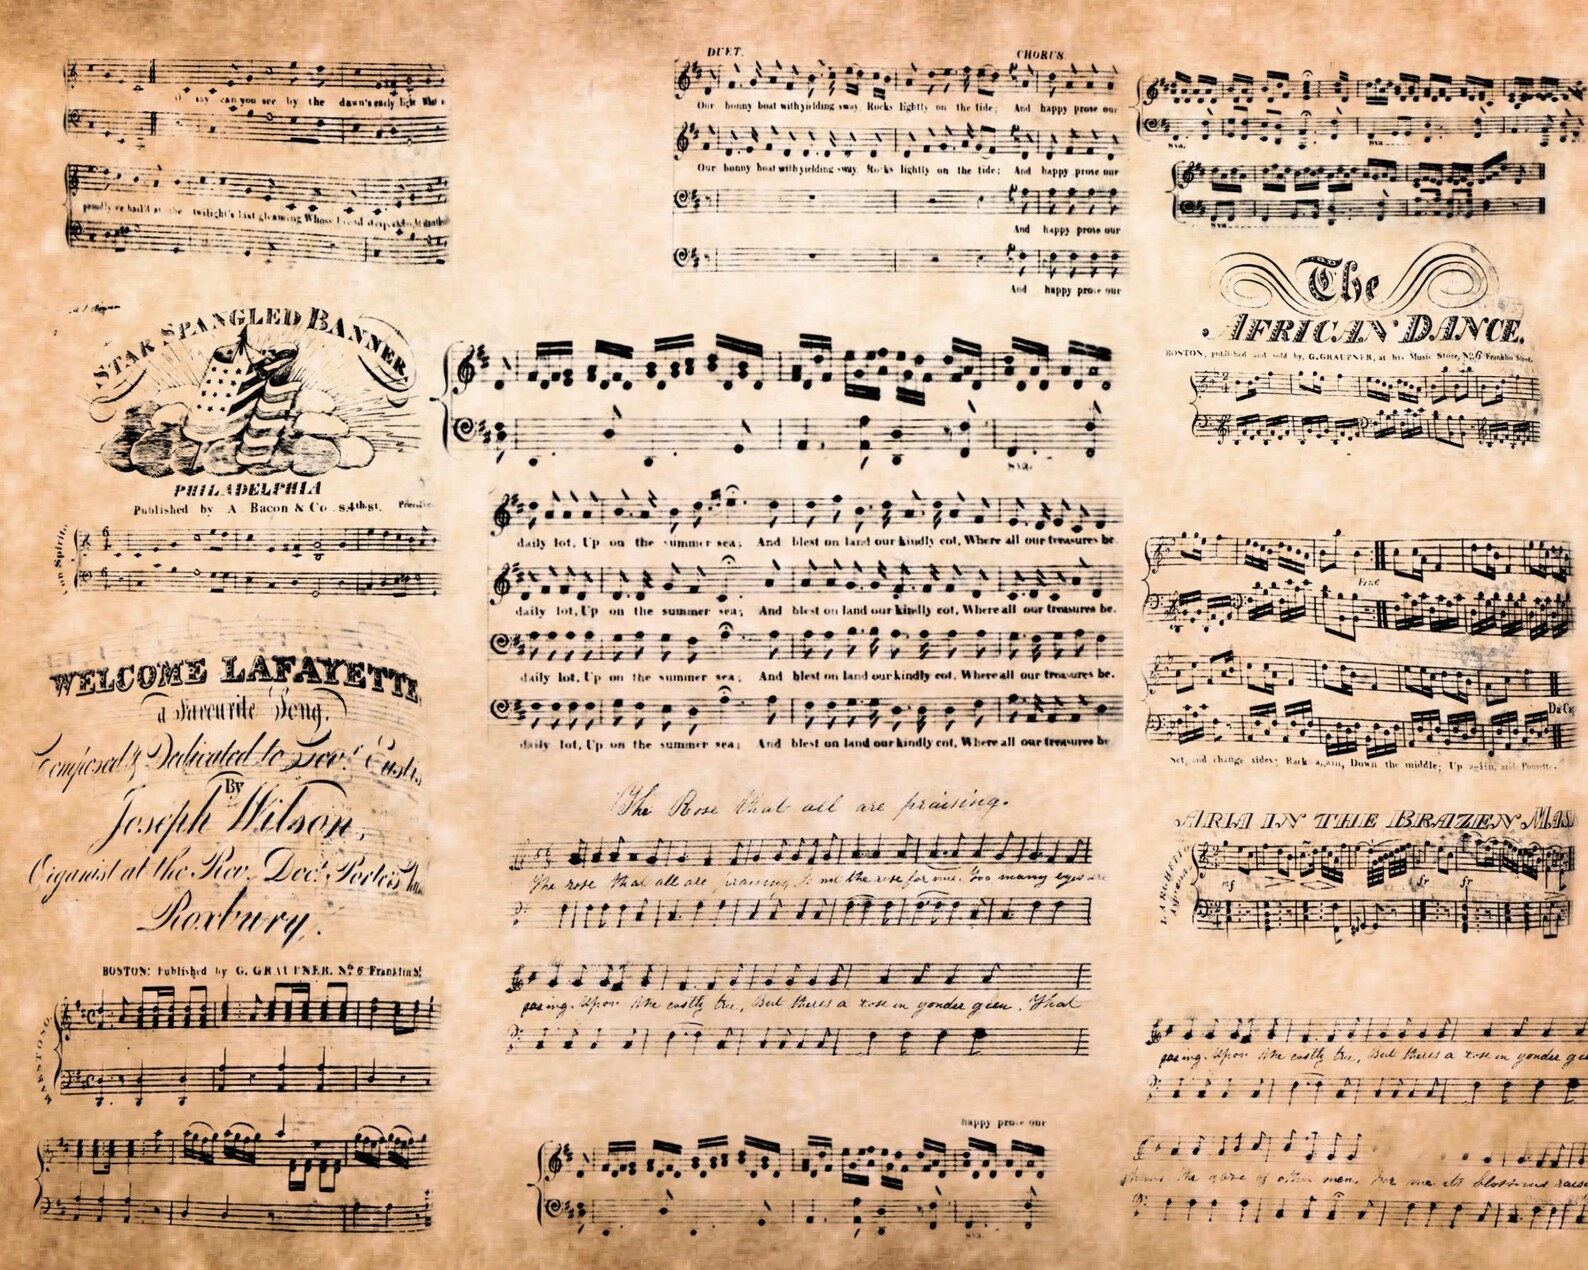 can you see by the dawn's early light
proudly we hail'd at the twilight's last gleaming Whose
STAR SPANGLED BANNER.
PHILADELPHIA
Published by A Bacon & Co. S.4th st.
WELCOME LAFAYETTE
a Favourite Song.
Composed & Dedicated to
By
Joseph Wilson,
Organist at the Rev. Doct. Porter's
Roxbury.
BOSTON: Published by G. GRAUPNER. No. 6 Franklin St
DUET. CHORUS.
Our bonny boat with yielding sway Rocks lightly on the tide; And happy prose our
Our bonny boat with yielding sway Rocks lightly on the tide; And happy prose our
And happy prose our
And happy prose our
8va.
daily lot, Up on the summer sea; And blest on land our kindly cot, Where all our treasures be.
daily lot, Up on the summer sea; And blest on land our kindly cot, Where all our treasures be.
daily lot, Up on the summer sea; And blest on land our kindly cot, Where all our treasures be.
daily lot, Up on the summer sea; And blest on land our kindly cot, Where all our treasures be
The Rose that all are praising.
The rose that all are praising, Is not the rose for me. Too many eyes are
gazing. Upon the costly tree, But there's a rose in yonder glen. That
happy prose our
8va.
8va. 8va
8va
The
AFRICAN DANCE.
BOSTON, published and sold by G. GRAUPNER, at his Music Store, No. 6 Franklin Street.
Fine
Da Cap
Set, and change sides; Back again, Down the middle; Up again, and Pousette.
ARIA IN THE BRAZEN MAS
LARGHETTO
mf fr fr
gazing. Upon the costly tree, But there's a rose in yonder gle
shuns the gaze of other men. For me its blossoms raise